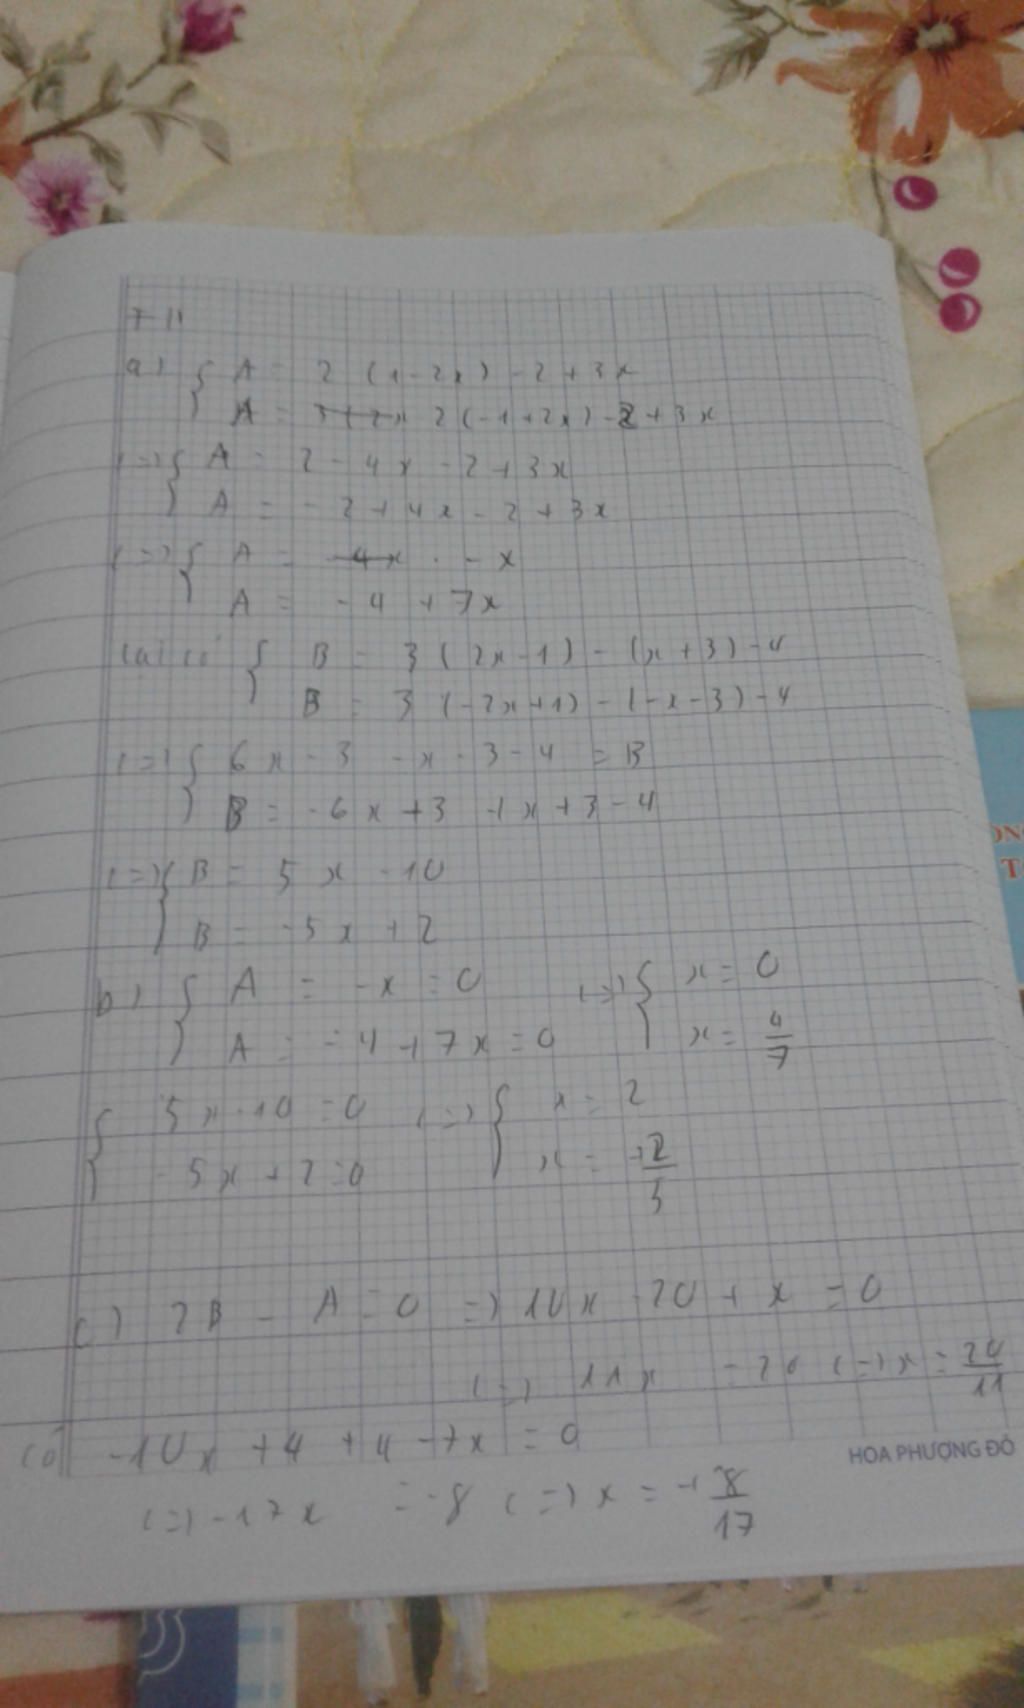 7-11
a) { A = 2 (1 - 2x) - 2 + 3x
A = 2(-1+2x) - 2 + 3x
(=) { A = 2 - 4x - 2 + 3x
A = -2 + 4x - 2 + 3x
(=) { A = -x
A = -4 + 7x
{ B = 3 (2x-1) - (x+3) - 4
B = 3 (-2x+1) - (-x-3) - 4
(=) { 6x - 3 - x - 3 - 4 = B
B = -6x + 3 + x + 3 - 4
(=) { B = 5x - 10
B = -5x + 2
b) { A = -x = 0 (=) { x = 0
A = -4 + 7x = 0 x = 4/7
{ 5x - 10 = 0 (=) { x = 2
-5x + 2 = 0 x = +2/5
c) 2B - A = 0 =) 10x - 20 + x = 0
(=) 11x = 20 (=) x = 20/11
-10x + 4 + 4 - 7x = 0
(=) -17x = -8 (=) x = +8/17
HOA PHƯỢNG ĐỎ